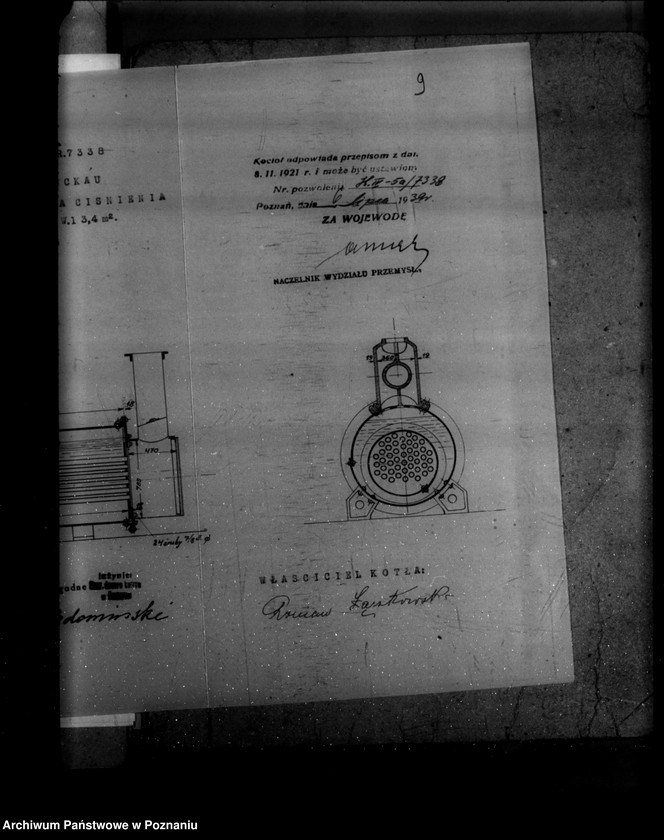 9
7338
CKAU
A CIŚNIENIA
W.13,4 m².
Kocioł odpowiada przepisom z dn.
8. II. 1921 r. i może być ustawiony
Nr. pozwolenia H.II-5a/7338
Poznań, dnia 6 lipca 1939r.
ZA WOJEWODĘ
NACZELNIK WYDZIAŁU PRZEMYSŁ.
13
340
18
18
470
710
24 śruby 7/8"
WŁAŚCICIEL KOTŁA:
Roman Łączkowski
Archiwum Państwowe w Poznaniu